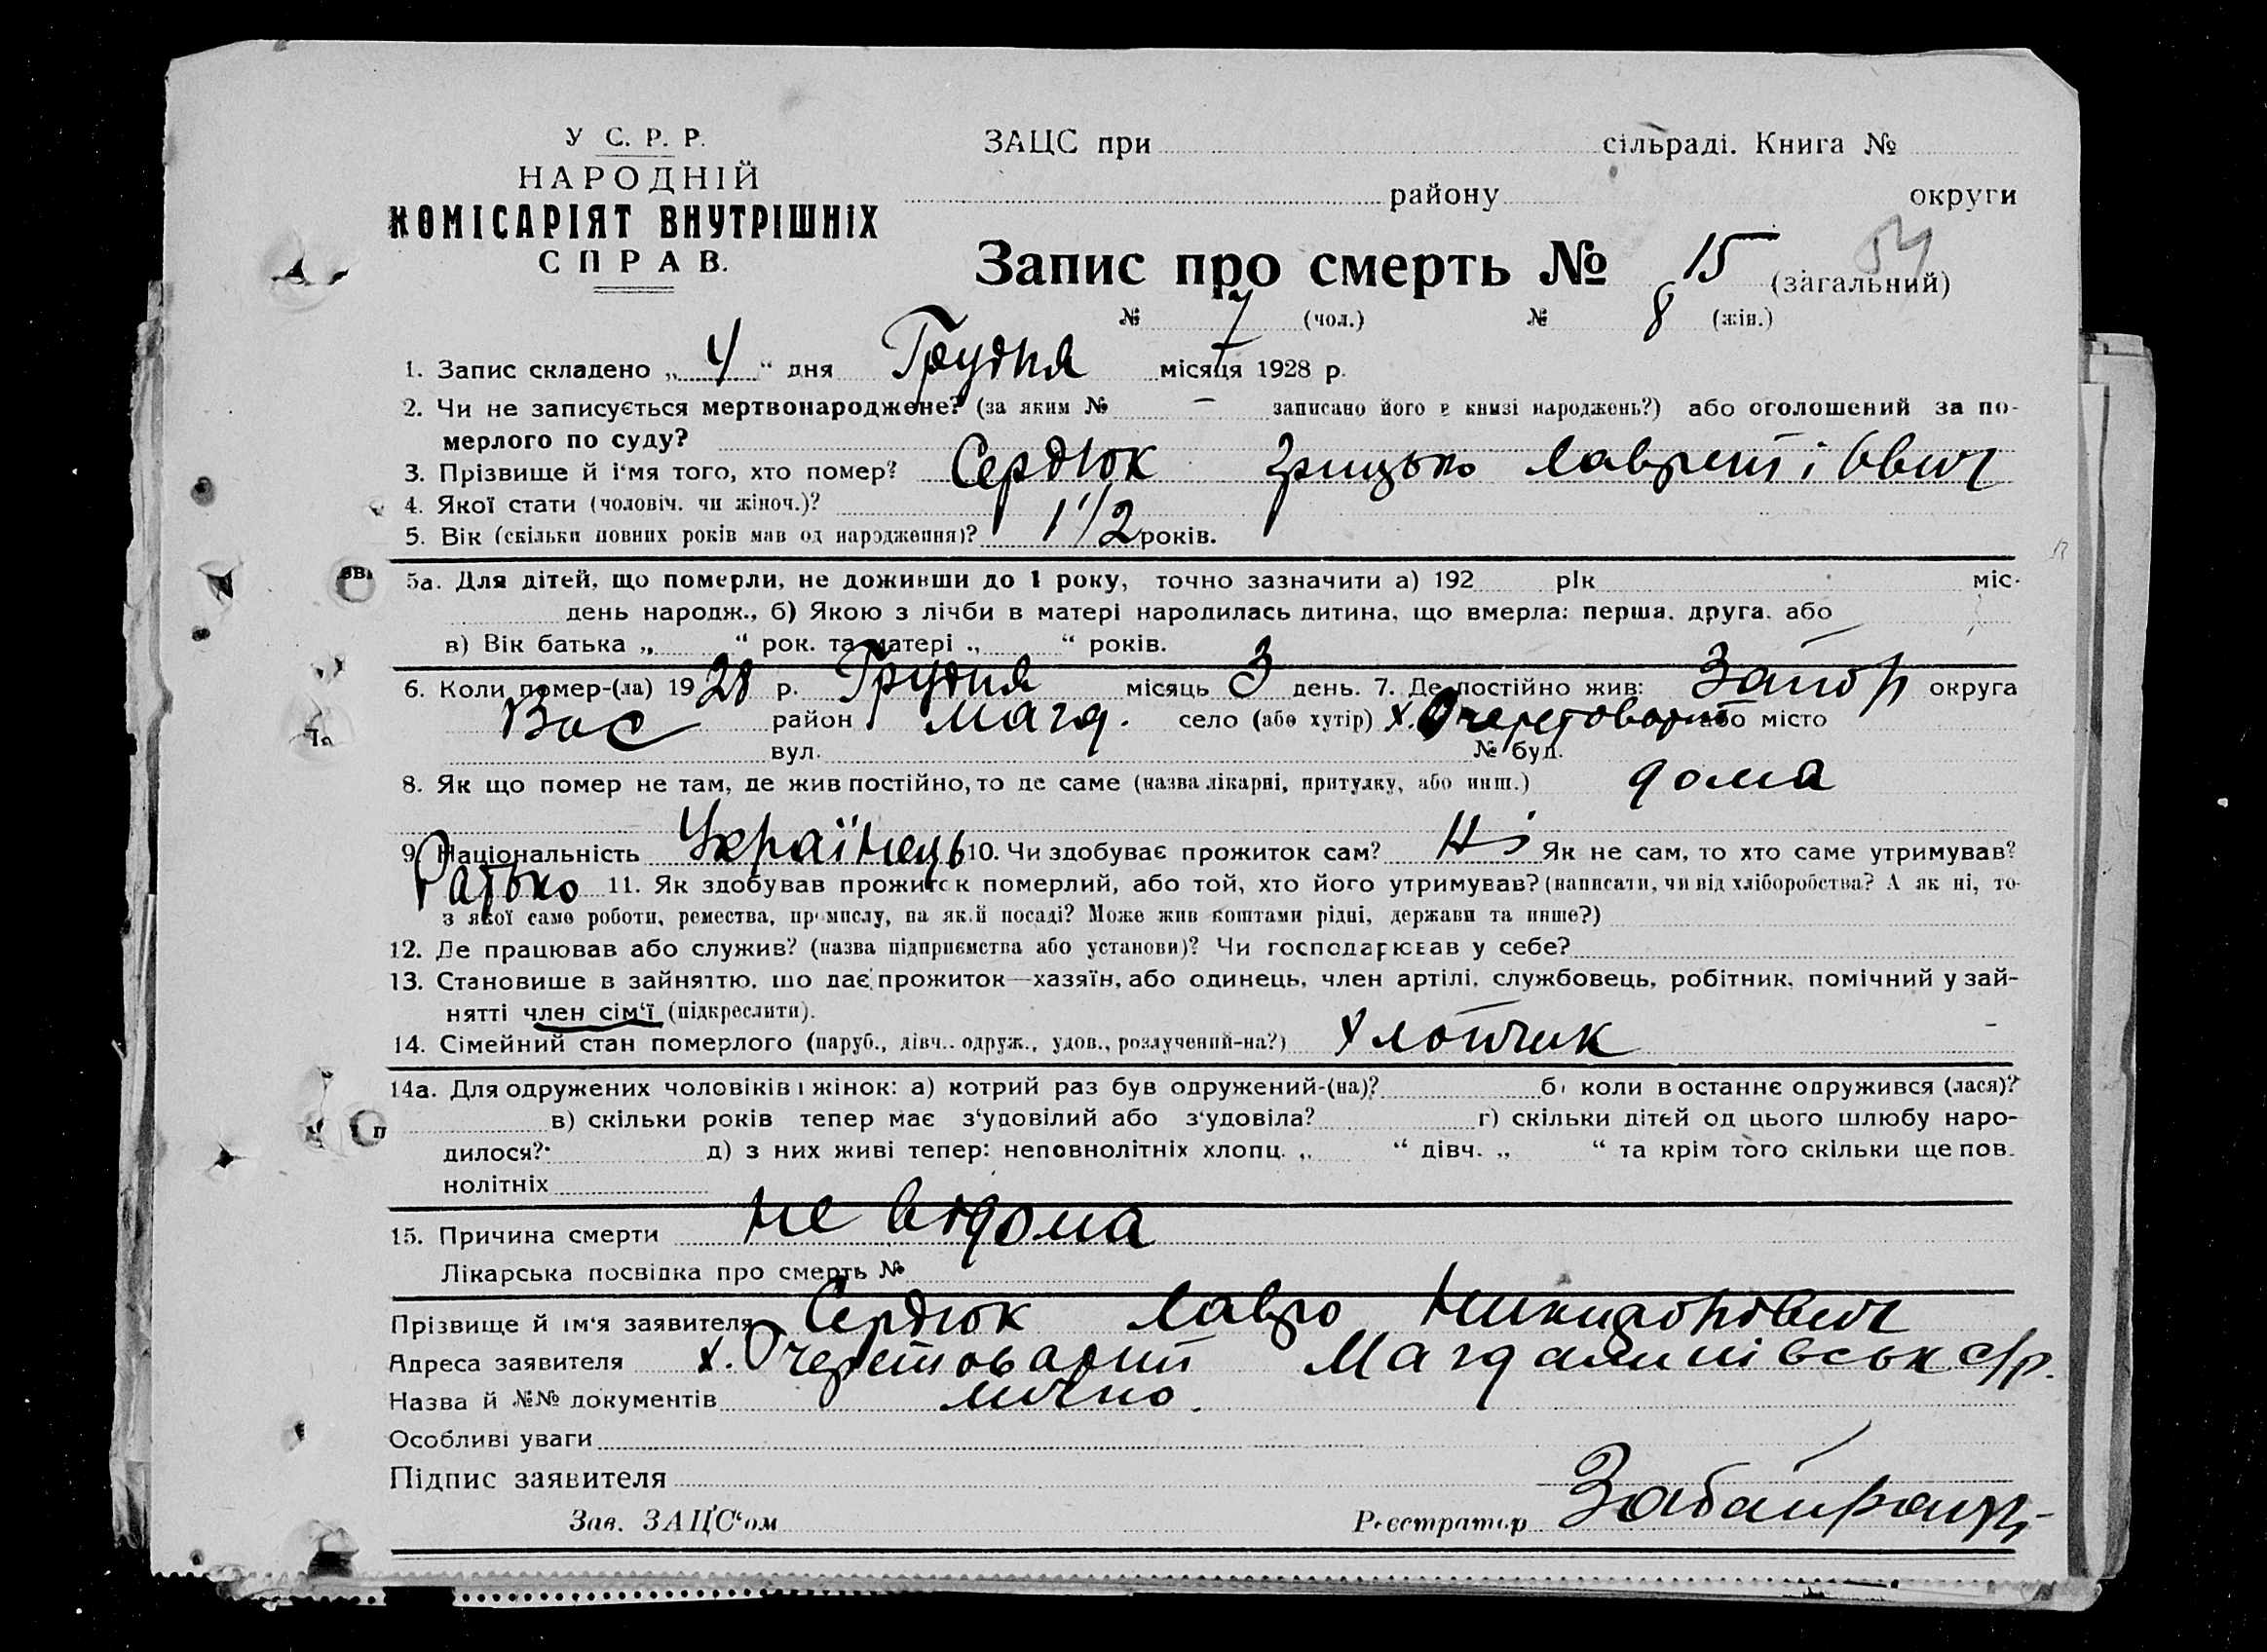 У С. Р. Р.
НАРОДНІЙ
КОМІСАРІЯТ ВНУТРІШНІХ
СПРАВ.
ЗАЦС при сільраді. Книга №
району округи
Запис про смерть № 15 (загальний) 54
№ 7 (чол.) № 8 (жін.)
1. Запис складено „4“ дня Грудня місяця 1928 р.
2. Чи не записується мертвонароджене? (за яким № – записано його в книзі народжень?) або оголошений за по-
мерлого по суду?
3. Прізвище й і'мя того, хто помер? Сердюк Грицько Лаврентієвич
4. Якої стати (чоловіч. чи жіноч.)?
5. Вік (скільки повних років мав од народження)? 1 1/2 років.
5а. Для дітей, що померли, не доживши до 1 року, точно зазначити а) 192 рік міс.
день народж., б) Якою з лічби в матері народилась дитина, що вмерла: перша, друга, або
в) Вік батька „ “ рок. та матері „ “ років.
6. Коли помер-(ла) 1928 р. Грудня місяць 3 день. 7. Де постійно жив: Запор округа
Вас район Магд. село (або хутір) х. Очеретоватий або місто
вул. № буд.
8. Як що помер не там, де жив постійно, то де саме (назва лікарні, притулку, або инш.) дома
9. Національність Українець 10. Чи здобуває прожиток сам? Ні Як не сам, то хто саме утримував?
Батько 11. Як здобував прожиток померлий, або той, хто його утримував? (написати, чи від хліборобства? А як ні, то
з якої само роботи, ремества, промислу, на якій посаді? Може жив коштами рідні, держави та инше?)
12. Де працював або служив? (назва підприємства або установи)? Чи господарював у себе?
13. Становище в зайняттю, що дає прожиток—хазяїн, або одинець, член артілі, службовець, робітник, помічний у зай-
нятті член сім'ї (підкреслити).
14. Сімейний стан померлого (паруб., дівч.. одруж., удов., розлучений-на?) Хлопчик
14а. Для одружених чоловіків і жінок: а) котрий раз був одружений-(на)? б) коли востаннє одружився (лася)?
в) скільки років тепер має з'удовілий або з'удовіла? г) скільки дітей од цього шлюбу наро-
дилося? д) з них живі тепер: неповнолітніх хлопц. „ “ дівч. „ “ та крім того скільки ще пов.
нолітніх
15. Причина смерти не відома
Лікарська посвідка про смерть №
Прізвище й ім'я заявителя Сердюк Лавро Никифорович
Адреса заявителя х. Очеретоватий Магдалинівськ с/р.
Назва й №№ документів лично.
Особливі уваги
Підпис заявителя
Зав. ЗАЦС'ом Реєстратор